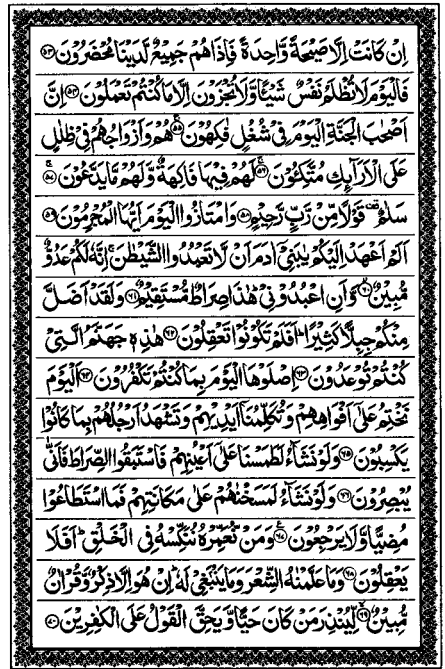 اِنْ كَانَتْ اِلَّا صَيْحَةً وَّاحِدَةً فَاِذَا هُمْ جَمِيْعٌ لَّدَيْنَا مُحْضَرُوْنَ ۵۳
فَالْيَوْمَ لَا تُظْلَمُ نَفْسٌ شَيْـًٔا وَّلَا تُجْزَوْنَ اِلَّا مَا كُنْتُمْ تَعْمَلُوْنَ ۵۴ اِنَّ
اَصْحٰبَ الْجَنَّةِ الْيَوْمَ فِيْ شُغُلٍ فٰكِهُوْنَ ۵۵ هُمْ وَاَزْوَاجُهُمْ فِيْ ظِلٰلٍ
عَلَى الْاَرَآئِكِ مُتَّكِـُٔوْنَ ۵۶ لَهُمْ فِيْهَا فَاكِهَةٌ وَّلَهُمْ مَّا يَدَّعُوْنَ ۵۷
سَلٰمٌ قَوْلًا مِّنْ رَّبٍّ رَّحِيْمٍ ۵۸ وَامْتَازُوا الْيَوْمَ اَيُّهَا الْمُجْرِمُوْنَ ۵۹
اَلَمْ اَعْهَدْ اِلَيْكُمْ يٰبَنِيْٓ اٰدَمَ اَنْ لَّا تَعْبُدُوا الشَّيْطٰنَ اِنَّهٗ لَكُمْ عَدُوٌّ
مُّبِيْنٌ ۶۰ وَّاَنِ اعْبُدُوْنِيْ هٰذَا صِرَاطٌ مُّسْتَقِيْمٌ ۶۱ وَلَقَدْ اَضَلَّ
مِنْكُمْ جِبِلًّا كَثِيْرًا اَفَلَمْ تَكُوْنُوْا تَعْقِلُوْنَ ۶۲ هٰذِهٖ جَهَنَّمُ الَّتِيْ
كُنْتُمْ تُوْعَدُوْنَ ۶۳ اِصْلَوْهَا الْيَوْمَ بِمَا كُنْتُمْ تَكْفُرُوْنَ ۶۴ اَلْيَوْمَ
نَخْتِمُ عَلٰٓى اَفْوَاهِهِمْ وَتُكَلِّمُنَآ اَيْدِيْهِمْ وَتَشْهَدُ اَرْجُلُهُمْ بِمَا كَانُوْا
يَكْسِبُوْنَ ۶۵ وَلَوْ نَشَآءُ لَطَمَسْنَا عَلٰٓى اَعْيُنِهِمْ فَاسْتَبَقُوا الصِّرَاطَ فَاَنّٰى
يُبْصِرُوْنَ ۶۶ وَلَوْ نَشَآءُ لَمَسَخْنٰهُمْ عَلٰى مَكَانَتِهِمْ فَمَا اسْتَطَاعُوْا
مُضِيًّا وَّلَا يَرْجِعُوْنَ ۶۷ وَمَنْ نُّعَمِّرْهُ نُنَكِّسْهُ فِي الْخَلْقِ اَفَلَا
يَعْقِلُوْنَ ۶۸ وَمَا عَلَّمْنٰهُ الشِّعْرَ وَمَا يَنْۢبَغِيْ لَهٗ اِنْ هُوَ اِلَّا ذِكْرٌ وَّقُرْاٰنٌ
مُّبِيْنٌ ۶۹ لِّيُنْذِرَ مَنْ كَانَ حَيًّا وَّيَحِقَّ الْقَوْلُ عَلَى الْكٰفِرِيْنَ ۷۰